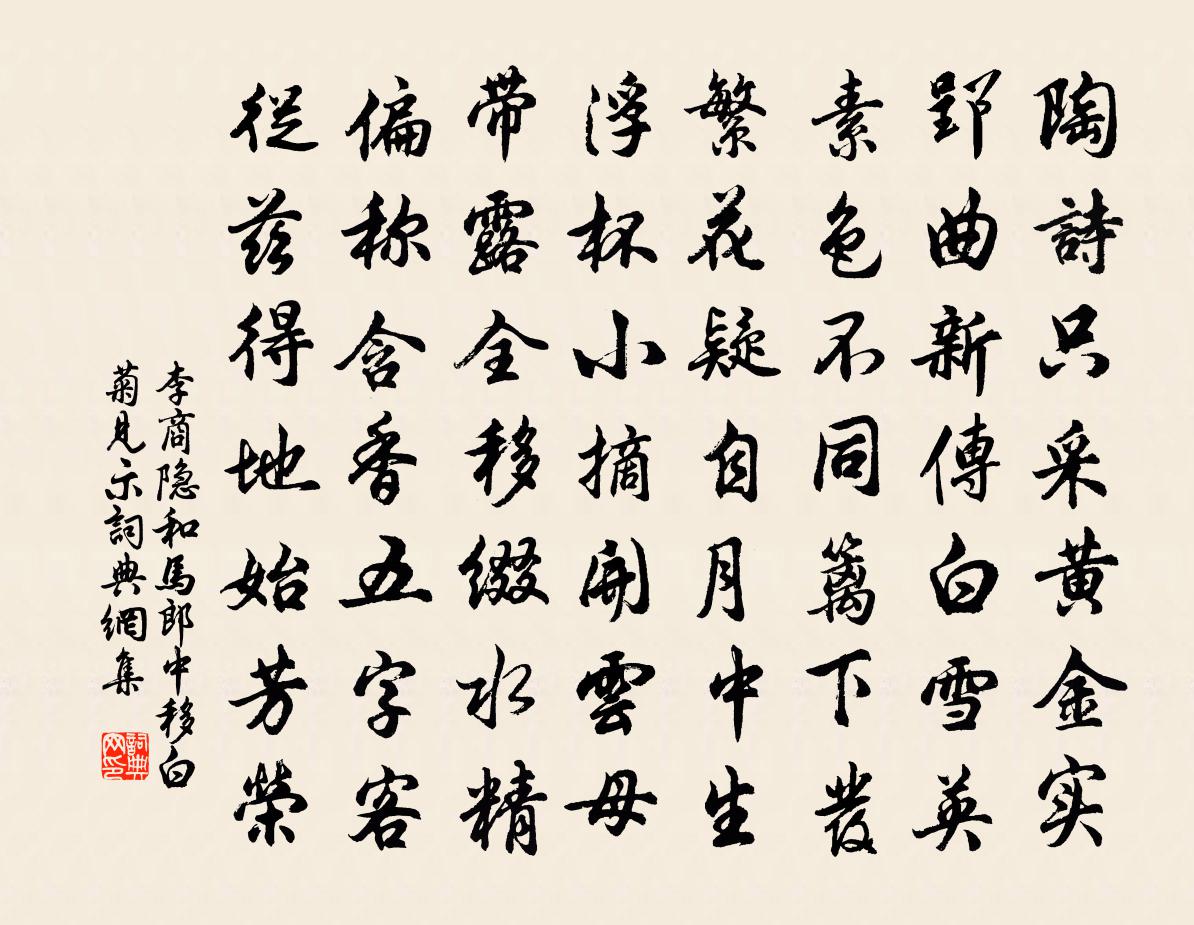 陶詩只采黄金实
郢曲新傳白雪英
素色不同篱下發
繁花疑自月中生
浮杯小摘開雲母
带露全移缀水精
偏称含香五字客
從兹得地始芳榮
李商隐和馬郎中移白
菊見示詞典網集
詞典
网印